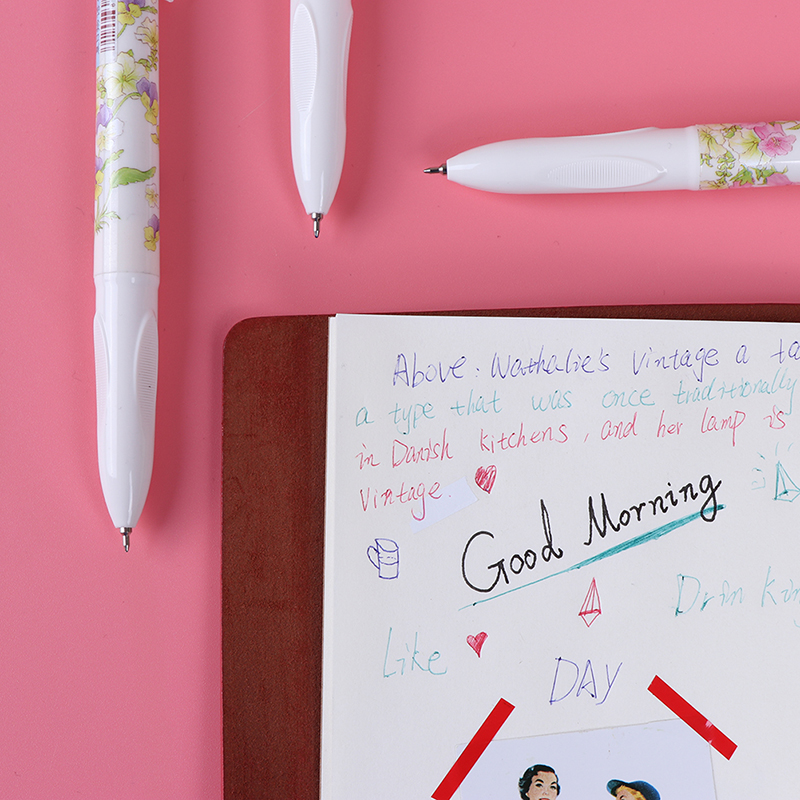 Above: Nathalie's vintage a ta
a type that was once traditionally
in Danish kitchens, and her lamp is
vintage.
Good Morning
Drin kin
Like
DAY